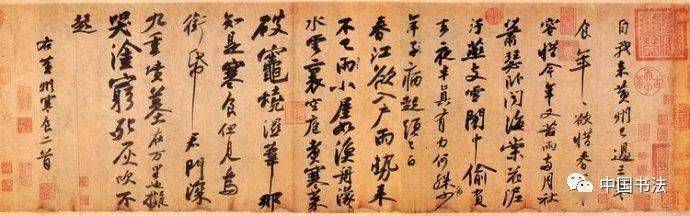 自我来黄州已過三寒
食年年欲惜春春去不
容惜今年又苦雨兩月秋
蕭瑟卧聞海棠花泥
汙燕支雪闇中偷負
去夜半真有力何殊少
年子病起頭已白
春江欲入户雨勢来
不已雨小屋如漁舟濛濛
水雲裏空庖煮寒菜
破竈燒濕葦那
知是寒食但見烏
銜帋君門深
九重墳墓在万里也擬
哭塗窮死灰吹不
起
右黄州寒食二首
中国书法